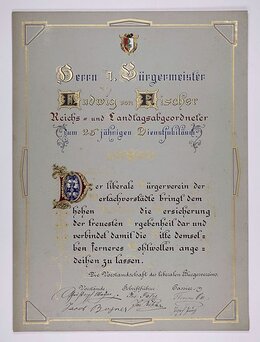 Herrn I. Bürgermeister
Ludwig von Fischer
Reichs- und Landtagsabgeordneter
zum 25 jährigen Dienstjubiläum
Der liberale Bürgerverein der
Wertachvorstädte bringt dem
hohen die Versicherung
der treuesten Ergebenheit dar und
verbindet damit die Bitte demsel-
ben ferneres Wohlwollen ange-
deihen zu lassen.
Die Vorstandschaft des liberalen Bürgervereins.
Vorstände Schriftführer Cassier
Jacob Bregner